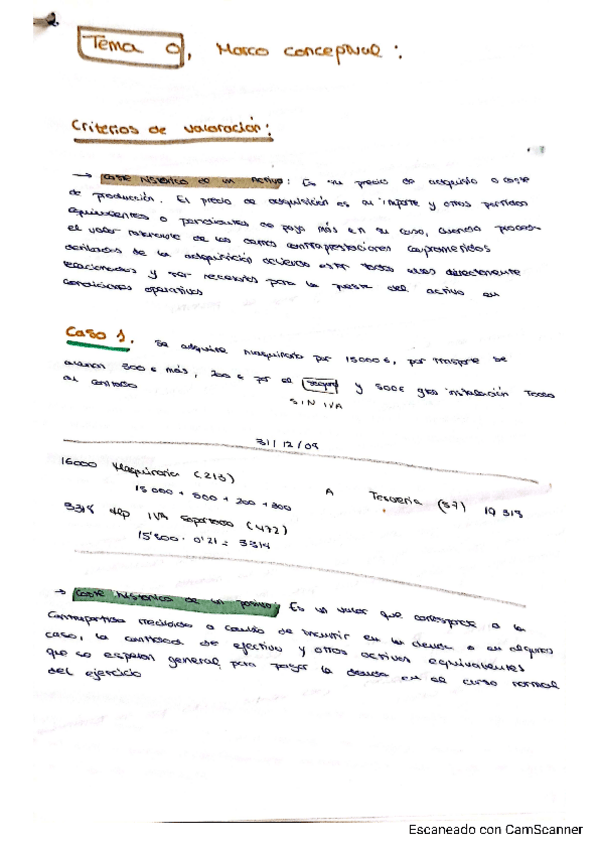 Tema 0, Marco conceptual:
Criterios de valoración:
→ coste histórico de un activo: Es su precio de adquisición o coste
de producción. El precio de adquisición es el importe y otras partidas
equivalentes o pendientes de pago más en su caso,
el valor de las
derivadas de la adquisición todas ellas directamente
relacionadas y ser necesarias para la puesta del activo en
condiciones operativas
Caso 1. Se adquiere maquinaria por 15000 €, por transporte se
300 € más, 200 € por el seguro y 500€ instalación Todo
al contado
SIN IVA
31/12/09
16000 Maquinaria (213)
15 000 + 500 + 200 + 300
A Tesorería (57) 19 318
3318 Hp IVA soportado (472)
15'800 · 0'21 = 3318
→ Coste histórico de un pasivo: Es un valor que corresponde a la
Contrapartida recibida a cambio de incurrir en la deuda o en algunos
caso, la cantidad de efectivo y otros activos equivalentes
que se esperan general para pagar la deuda en el curso normal
del ejercicio
Escaneado con CamScanner